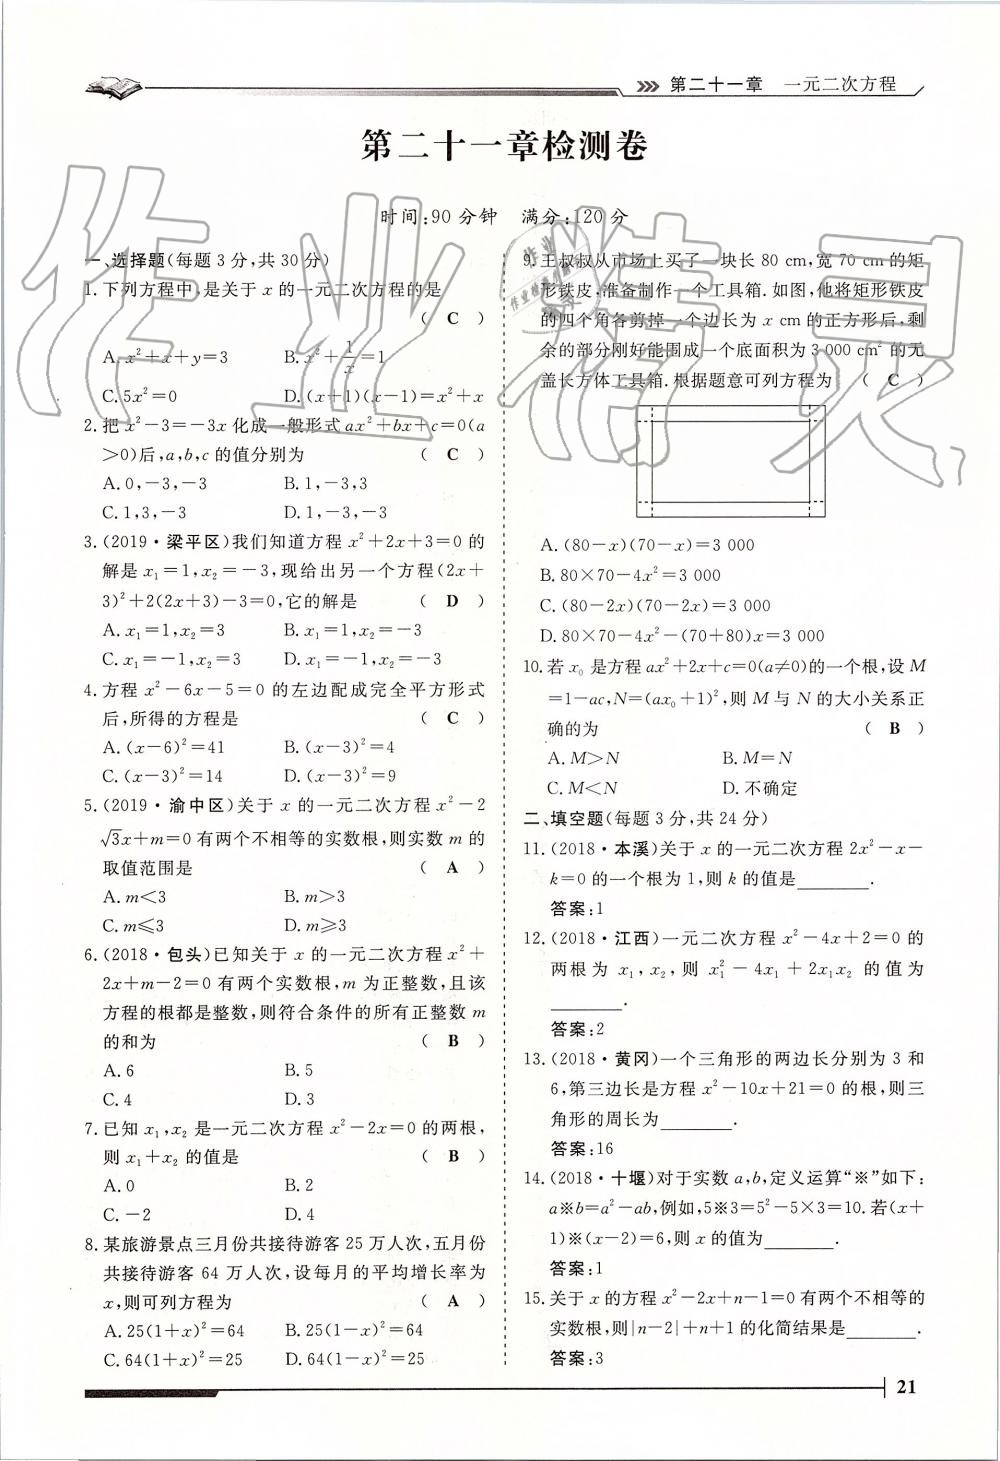 第二十一章 一元二次方程
第二十一章检测卷
时间:90分钟 满分:120分
一、选择题(每题3分,共30分)
1.下列方程中,是关于x的一元二次方程的是
( C )
A.x²+x+y=3 B.x²+1/x=1
C.5x²=0 D.(x+1)(x-1)=x²+x
2.把x²-3=-3x化成一般形式ax²+bx+c=0(a
>0)后,a,b,c的值分别为 ( C )
A.0,-3,-3 B.1,-3,3
C.1,3,-3 D.1,-3,-3
3.(2019·梁平区)我们知道方程x²+2x+3=0的
解是x₁=1,x₂=-3,现给出另一个方程(2x+
3)²+2(2x+3)-3=0,它的解是 ( D )
A.x₁=1,x₂=3 B.x₁=1,x₂=-3
C.x₁=-1,x₂=3 D.x₁=-1,x₂=-3
4.方程x²-6x-5=0的左边配成完全平方形式
后,所得的方程是 ( C )
A.(x-6)²=41 B.(x-3)²=4
C.(x-3)²=14 D.(x-3)²=9
5.(2019·渝中区)关于x的一元二次方程x²-2
√3x+m=0有两个不相等的实数根,则实数m的
取值范围是 ( A )
A.m<3 B.m>3
C.m≤3 D.m≥3
6.(2018·包头)已知关于x的一元二次方程x²+
2x+m-2=0有两个实数根,m为正整数,且该
方程的根都是整数,则符合条件的所有正整数m
的和为 ( B )
A.6 B.5
C.4 D.3
7.已知x₁,x₂是一元二次方程x²-2x=0的两根,
则x₁+x₂的值是 ( B )
A.0 B.2
C.-2 D.4
8.某旅游景点三月份共接待游客25万人次,五月份
共接待游客64万人次,设每月的平均增长率为
x,则可列方程为 ( A )
A.25(1+x)²=64 B.25(1-x)²=64
C.64(1+x)²=25 D.64(1-x)²=25
9.王叔叔从市场上买了一块长80 cm,宽70 cm的矩
形铁皮,准备制作一个工具箱.如图,他将矩形铁皮
的四个角各剪掉一个边长为x cm的正方形后,剩
余的部分刚好能围成一个底面积为3 000 cm²的无
盖长方体工具箱.根据题意可列方程为 ( C )
A.(80-x)(70-x)=3 000
B.80×70-4x²=3 000
C.(80-2x)(70-2x)=3 000
D.80×70-4x²-(70+80)x=3 000
10.若x₀是方程ax²+2x+c=0(a≠0)的一个根,设M
=1-ac,N=(ax₀+1)²,则M与N的大小关系正
确的为 ( B )
A.M>N B.M=N
C.M<N D.不确定
二、填空题(每题3分,共24分)
11.(2018·本溪)关于x的一元二次方程2x²-x-
k=0的一个根为1,则k的值是________.
答案:1
12.(2018·江西)一元二次方程x²-4x+2=0的
两根为x₁,x₂,则x₁²-4x₁+2x₁x₂的值为
________.
答案:2
13.(2018·黄冈)一个三角形的两边长分别为3和
6,第三边长是方程x²-10x+21=0的根,则三
角形的周长为________.
答案:16
14.(2018·十堰)对于实数a,b,定义运算“※”如下:
a※b=a²-ab,例如,5※3=5²-5×3=10.若(x+
1)※(x-2)=6,则x的值为________.
答案:1
15.关于x的方程x²-2x+n-1=0有两个不相等的
实数根,则|n-2|+n+1的化简结果是________.
答案:3
21
作业精灵